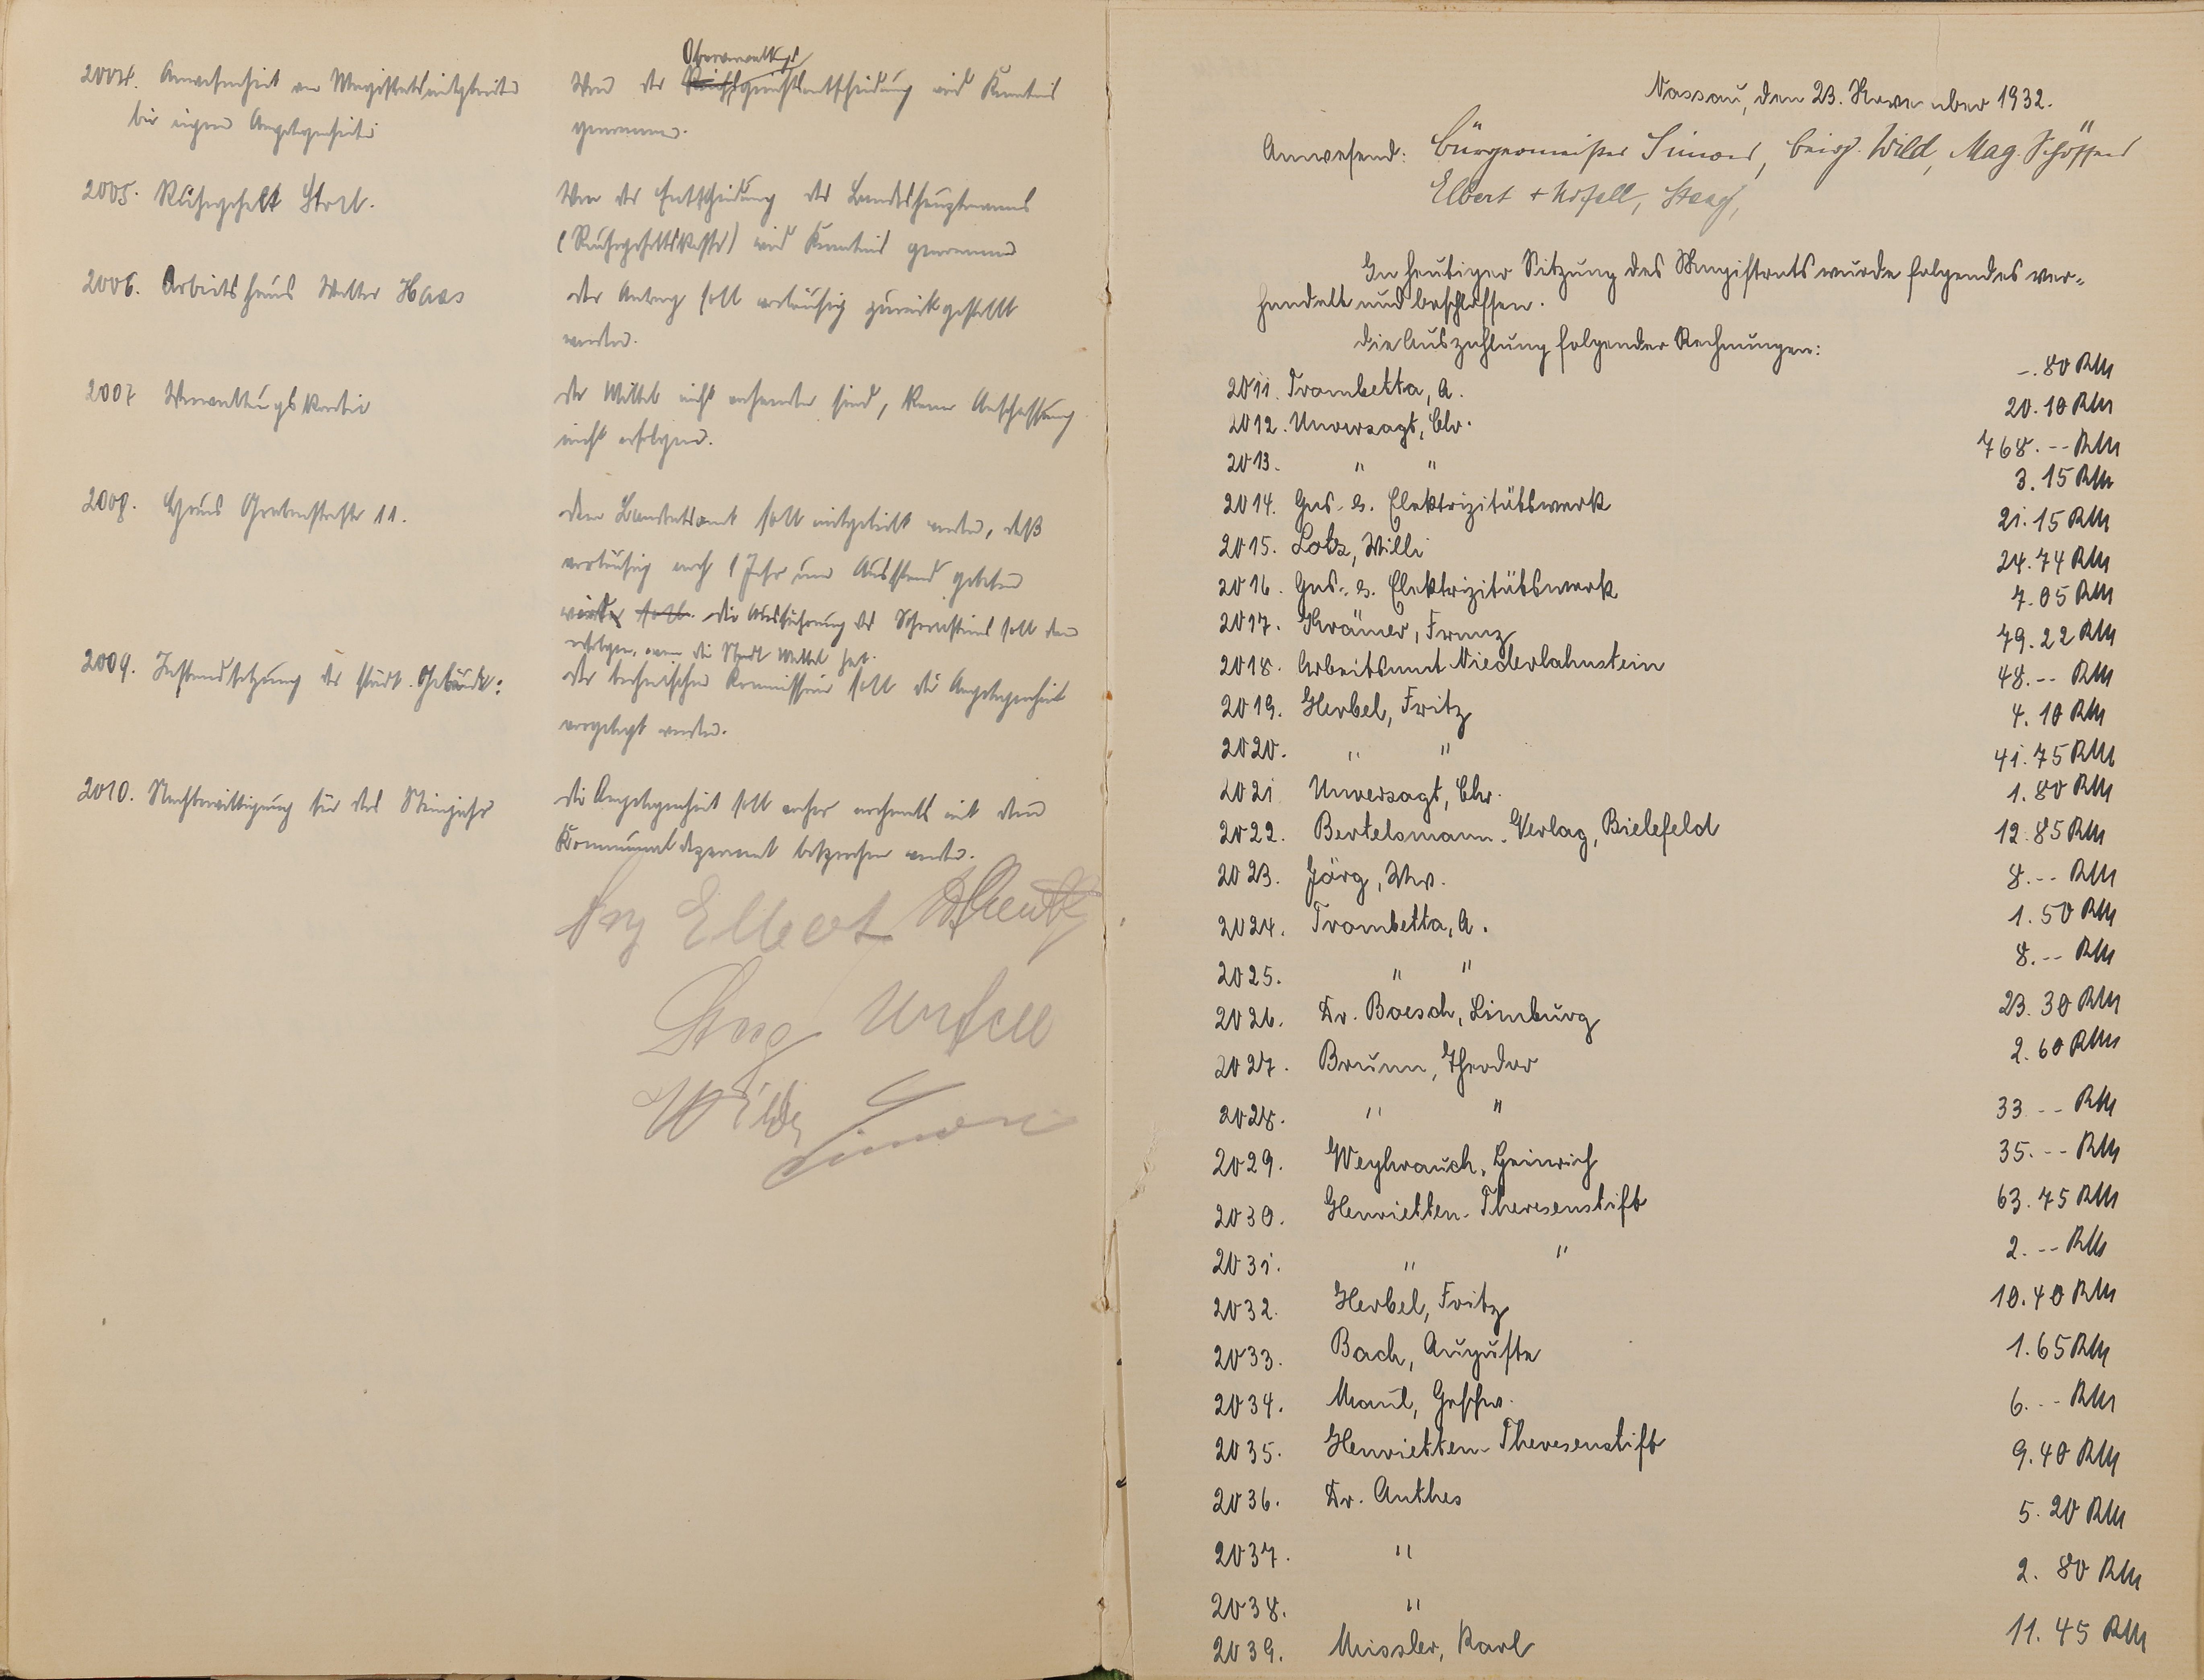 2004. Anwesenheit von Magistratsmitgliedern
bei eigenen Angelegenheiten
Oberverwaltgs
Von der Reichsgerichtsentscheidung wird Kenntnis
genommen.
2005. Ruhegehalt
Von der Entscheidung des Landeshauptmanns
(Ruhegehaltskasse) wird Kenntnis genommen
2006. Arbeitshaus Walter Haas
Der Antrag soll vorläufig zurückgestellt
werden.
2007 Verwaltungs
Da Mittel nicht vorhanden sind, kann Anschaffung
nicht erfolgen.
2008. Haus Grabenstraße 11.
Dem Landratsamt soll mitgeteilt werden, daß
vorläufig noch 1 Jahr um Ausstand gebeten
wird soll. Die Ausführung des Schornsteins soll dann
erfolgen, wenn die Stadt Mittel hat.
2009. Instandsetzung der städt. Gebäude:
Der technischen Kommission soll die Angelegenheit
vorgelegt werden.
2010. Nachbewilligung für das
Die Angelegenheit soll vorher nochmals mit dem
Kommunaldezernent besprochen werden.
Elbert
Staag Unfall
Wild
Simon
Nassau, den 23. November 1932.
Anwesend: Bürgermeister Simon, Beig. Wild, Mag. Schöffen
Elbert + Unfall, Staag,
In heutiger Sitzung des Magistrats wurde folgendes ver-
handelt und beschlossen.
Die Auszahlung folgender Rechnungen:
2011. Trombetta, A. -.80 RM
2012. Unversagt, Chr. 20.10 RM
2013. " " 768.-- RM
2014. Gas- u. Elektrizitätswerk 3.15 RM
2015. Lotz, Willi 21.15 RM
2016. Gas- u. Elektrizitätswerk 24.74 RM
2017. Krämer, Franz 7.05 RM
2018. Arbeitsamt Niederlahnstein 79.22 RM
2019. Herbel, Fritz 48.-- RM
2020. " " 4.10 RM
2021 Unversagt, Chr. 41.75 RM
2022. Bertelsmann-Verlag, Bielefeld 1.80 RM
2023. Jörg, Ww. 12.85 RM
2024. Trombetta, A. 8.-- RM
2025. " " 1.50 RM
2026. Dr. Boesch, Limburg 8.-- RM
2027. Brunn, Theodor 23.30 RM
2028. " " 2.60 RM
2029. Weyhrauch, Heinrich 33.-- RM
2030. Henrietten-Theresenstift 35.-- RM
2031. " " 63.75 RM
2032. Herbel, Fritz 2.-- RM
2033. Bach, Auguste 10.40 RM
2034. Maul, Geschw. 1.65 RM
2035. Henrietten-Theresenstift 6.-- RM
2036. Dr. Anthes 9.40 RM
2037. " 5.20 RM
2038. " 2.80 RM
2039. Missler, Karl 11.45 RM